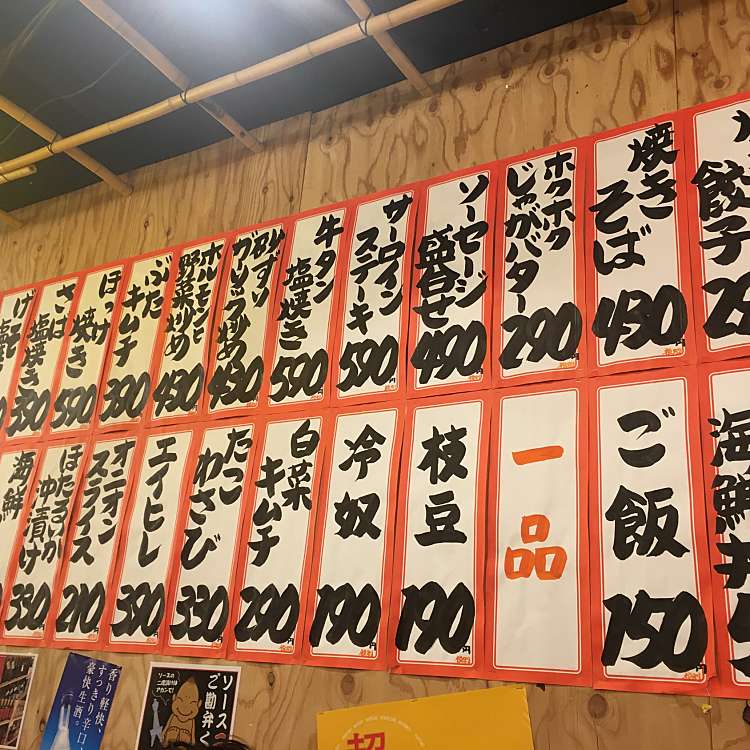 焼き
餃子
焼き
そば
430
ホクホク
じゃがバター
290
ソーセージ
盛合せ
490
サーロイン
ステーキ
590
牛タン
塩焼き
590
砂ずり
430
ホルモンと
野菜炒め
430
ぶた
キムチ
390
ほっけ
焼き
590
さば
塩焼き
390
海鮮丼
ご飯
150
一品
枝豆
190
冷奴
190
白菜
キムチ
290
たこ
わさび
330
エイヒレ
390
オニオン
スライス
210
ほたるいか
沖漬け
330
海鮮
香り軽快、
すっきり辛口
豪快生酒。
ソースの
二度漬けは
アカンで!
ソース
ご勘弁く
超